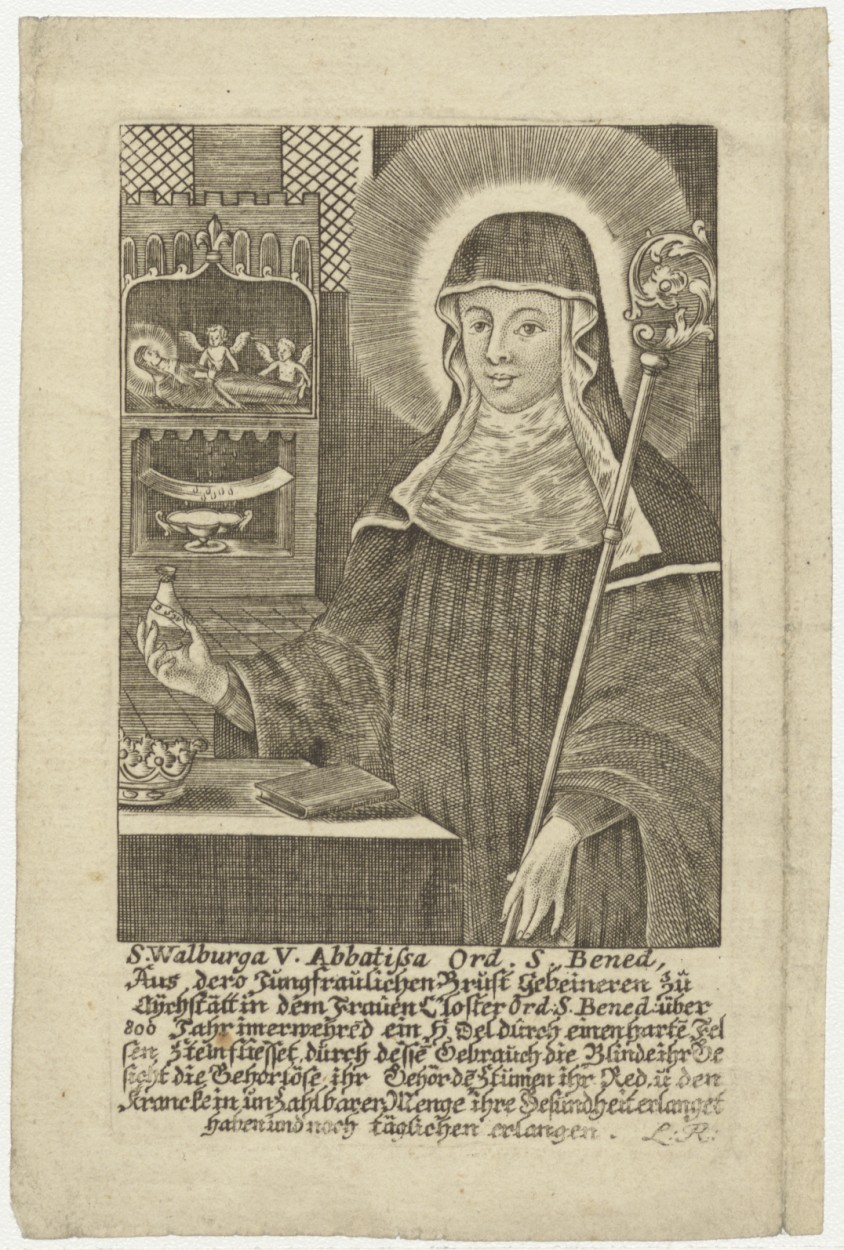 S. Walburga V. Abbatißa Ord. S. Bened,
Aus dero Jungfraulichen Brust Gebeineren zu
Aychstätt in dem Frauen Closter Ord. S. Bened. über
800 Jahr imerwehred ein H. Oel durch einen harte Fel
sen Stein fliesset, durch desse Gebrauch die Blinde ihr Ge
sicht die Gehorlöse ihr Gehör dē Stumen ihr Red, ū den
Krancke in unzahlbarer Menge ihre Gesundheit erlanget
haben und noch täglichen erlangen. L: R: